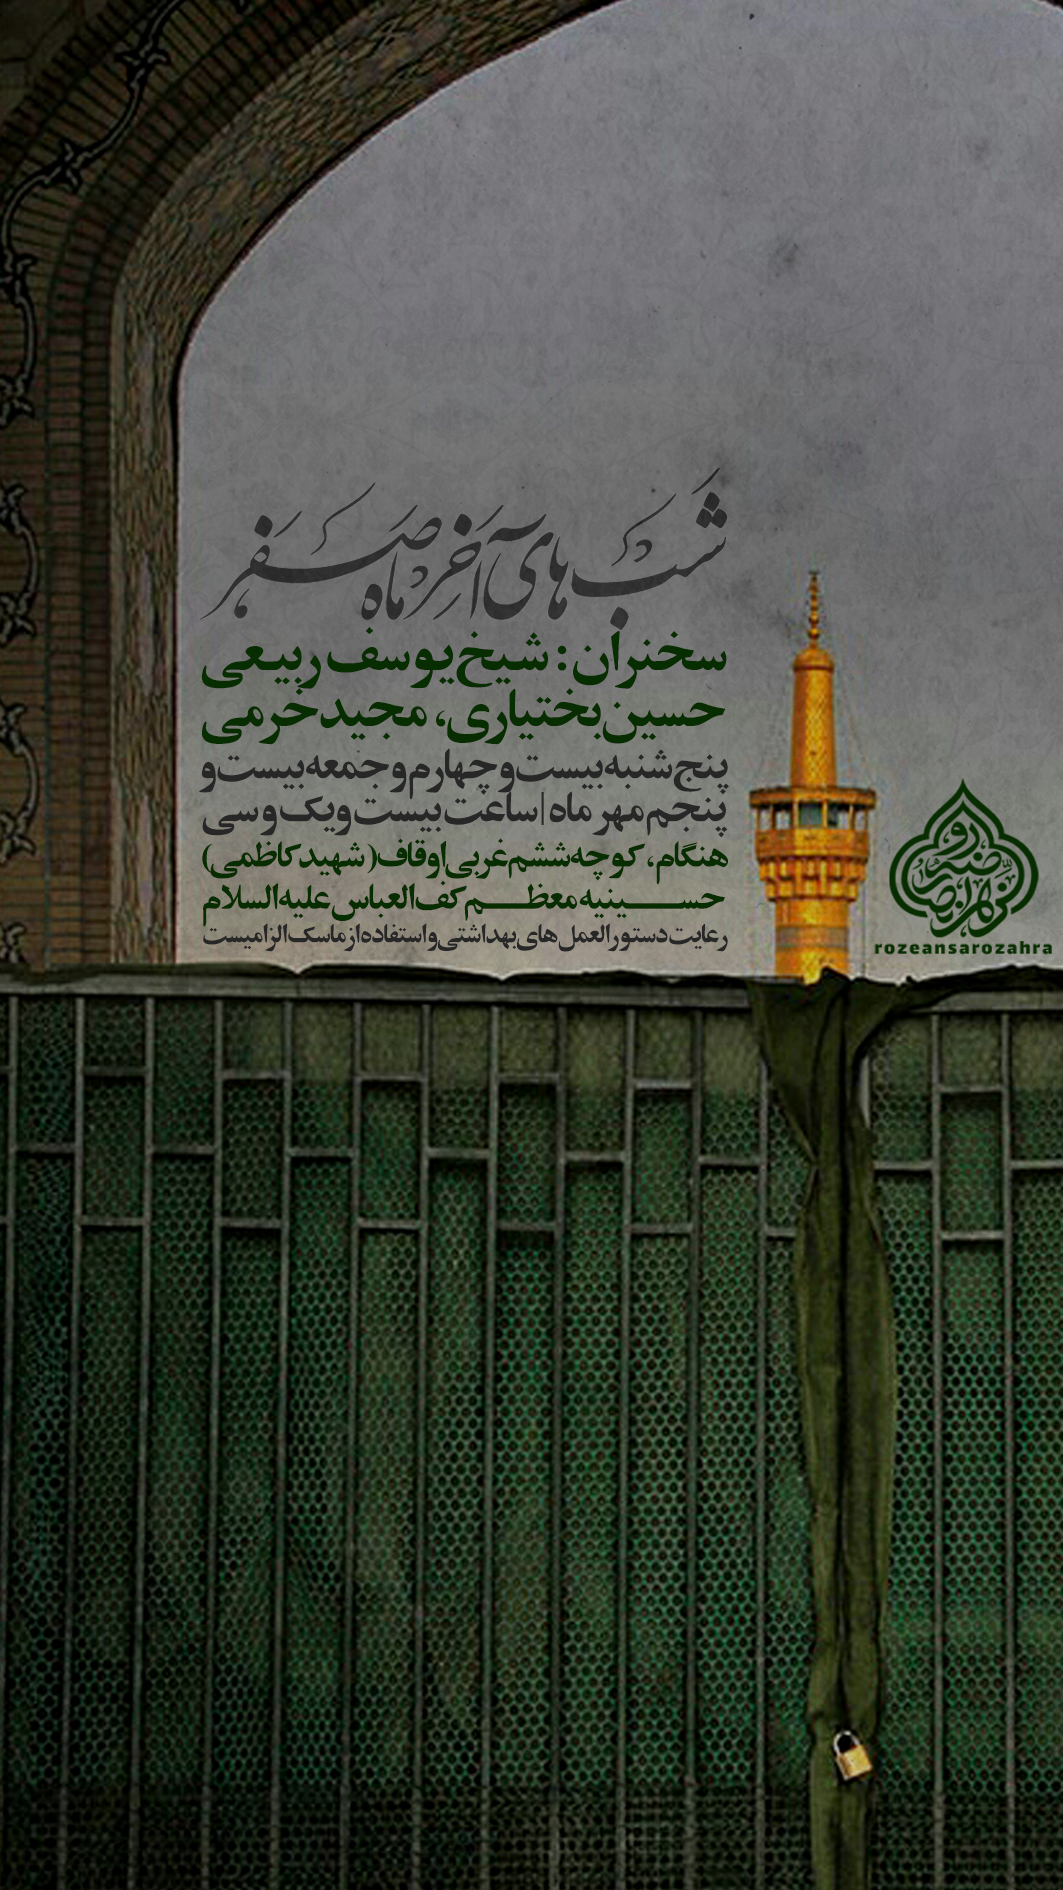 شب‌های آخر ماه صفر
سخنران: شیخ یوسف ربیعی
حسین بختیاری، مجید خرمی
پنج شنبه بیست و چهارم و جمعه بیست و
پنجم مهر ماه | ساعت بیست و یک و سی
هنگام، کوچه ششم غربی اوقاف (شهید کاظمی)
حسینیه معظم کف العباس علیه السلام
رعایت دستورالعمل های بهداشتی و استفاده از ماسک الزامیست
rozeansarozahra